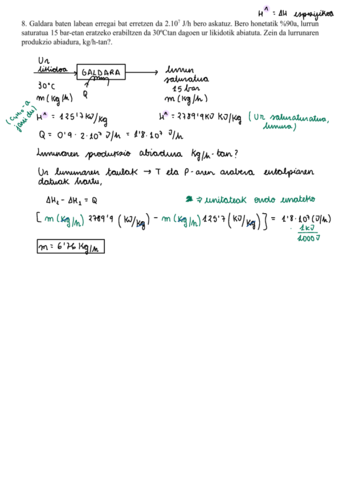 Ĥ = ΔH espezifikoa
8. Galdara baten labean erregai bat erretzen da 2.10⁷ J/h bero askatuz. Bero honetatik %90a, lurrun
saturatua 15 bar-etan eratzeko erabiltzen da 30ºCtan dagoen ur likidotik abiatuta. Zein da lurrunaren
produkzio abiadura, kg/h-tan?.
Ur likidoa → GALDARA → lurrun saturatua
30°C Q 15 bar
m (kg/h) m (kg/h)
Ĥ = 125'7 kJ/kg Ĥ = 2789'9 kJ/kg (Ur saturatua, lurruna)
Q = 0'9 · 2·10⁷ J/h = 1'8·10⁷ J/h
Lurrunaren produkzio abiadura kg/h-tan?
Ur lurrunaren taulak → T eta P-aren arabera entalpiaren
datuak hartu,
ΔH₂ - ΔH₁ = Q unitateak ondo emateko
[m (kg/h) 2789'9 (kJ/kg) - m (kg/h) 125'7 (kJ/kg)] = 1'8·10⁷ (J/h) · 1kJ/1000J
m = 6'76 kg/h